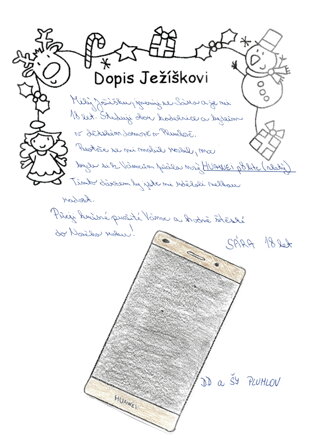 Dopis Ježíškovi
Milý Ježíšku, jmenuji se Sára a je mi
18 let. Studuji obor kadeřnice a bydlím
v dětském domově v Plumlově.
Protože se mi mobil rozbil, má
bych si k Vánocům přála nový HUAWEI p8 lite (zlatý)
Tímto dárkem by jste mi udělali velkou
radost.
Přeji krásné prožití Vánoc a hodně štěstí
do Nového roku!
SÁRA 18 let
HUAWEI
DD a ŠJ PLUMLOV